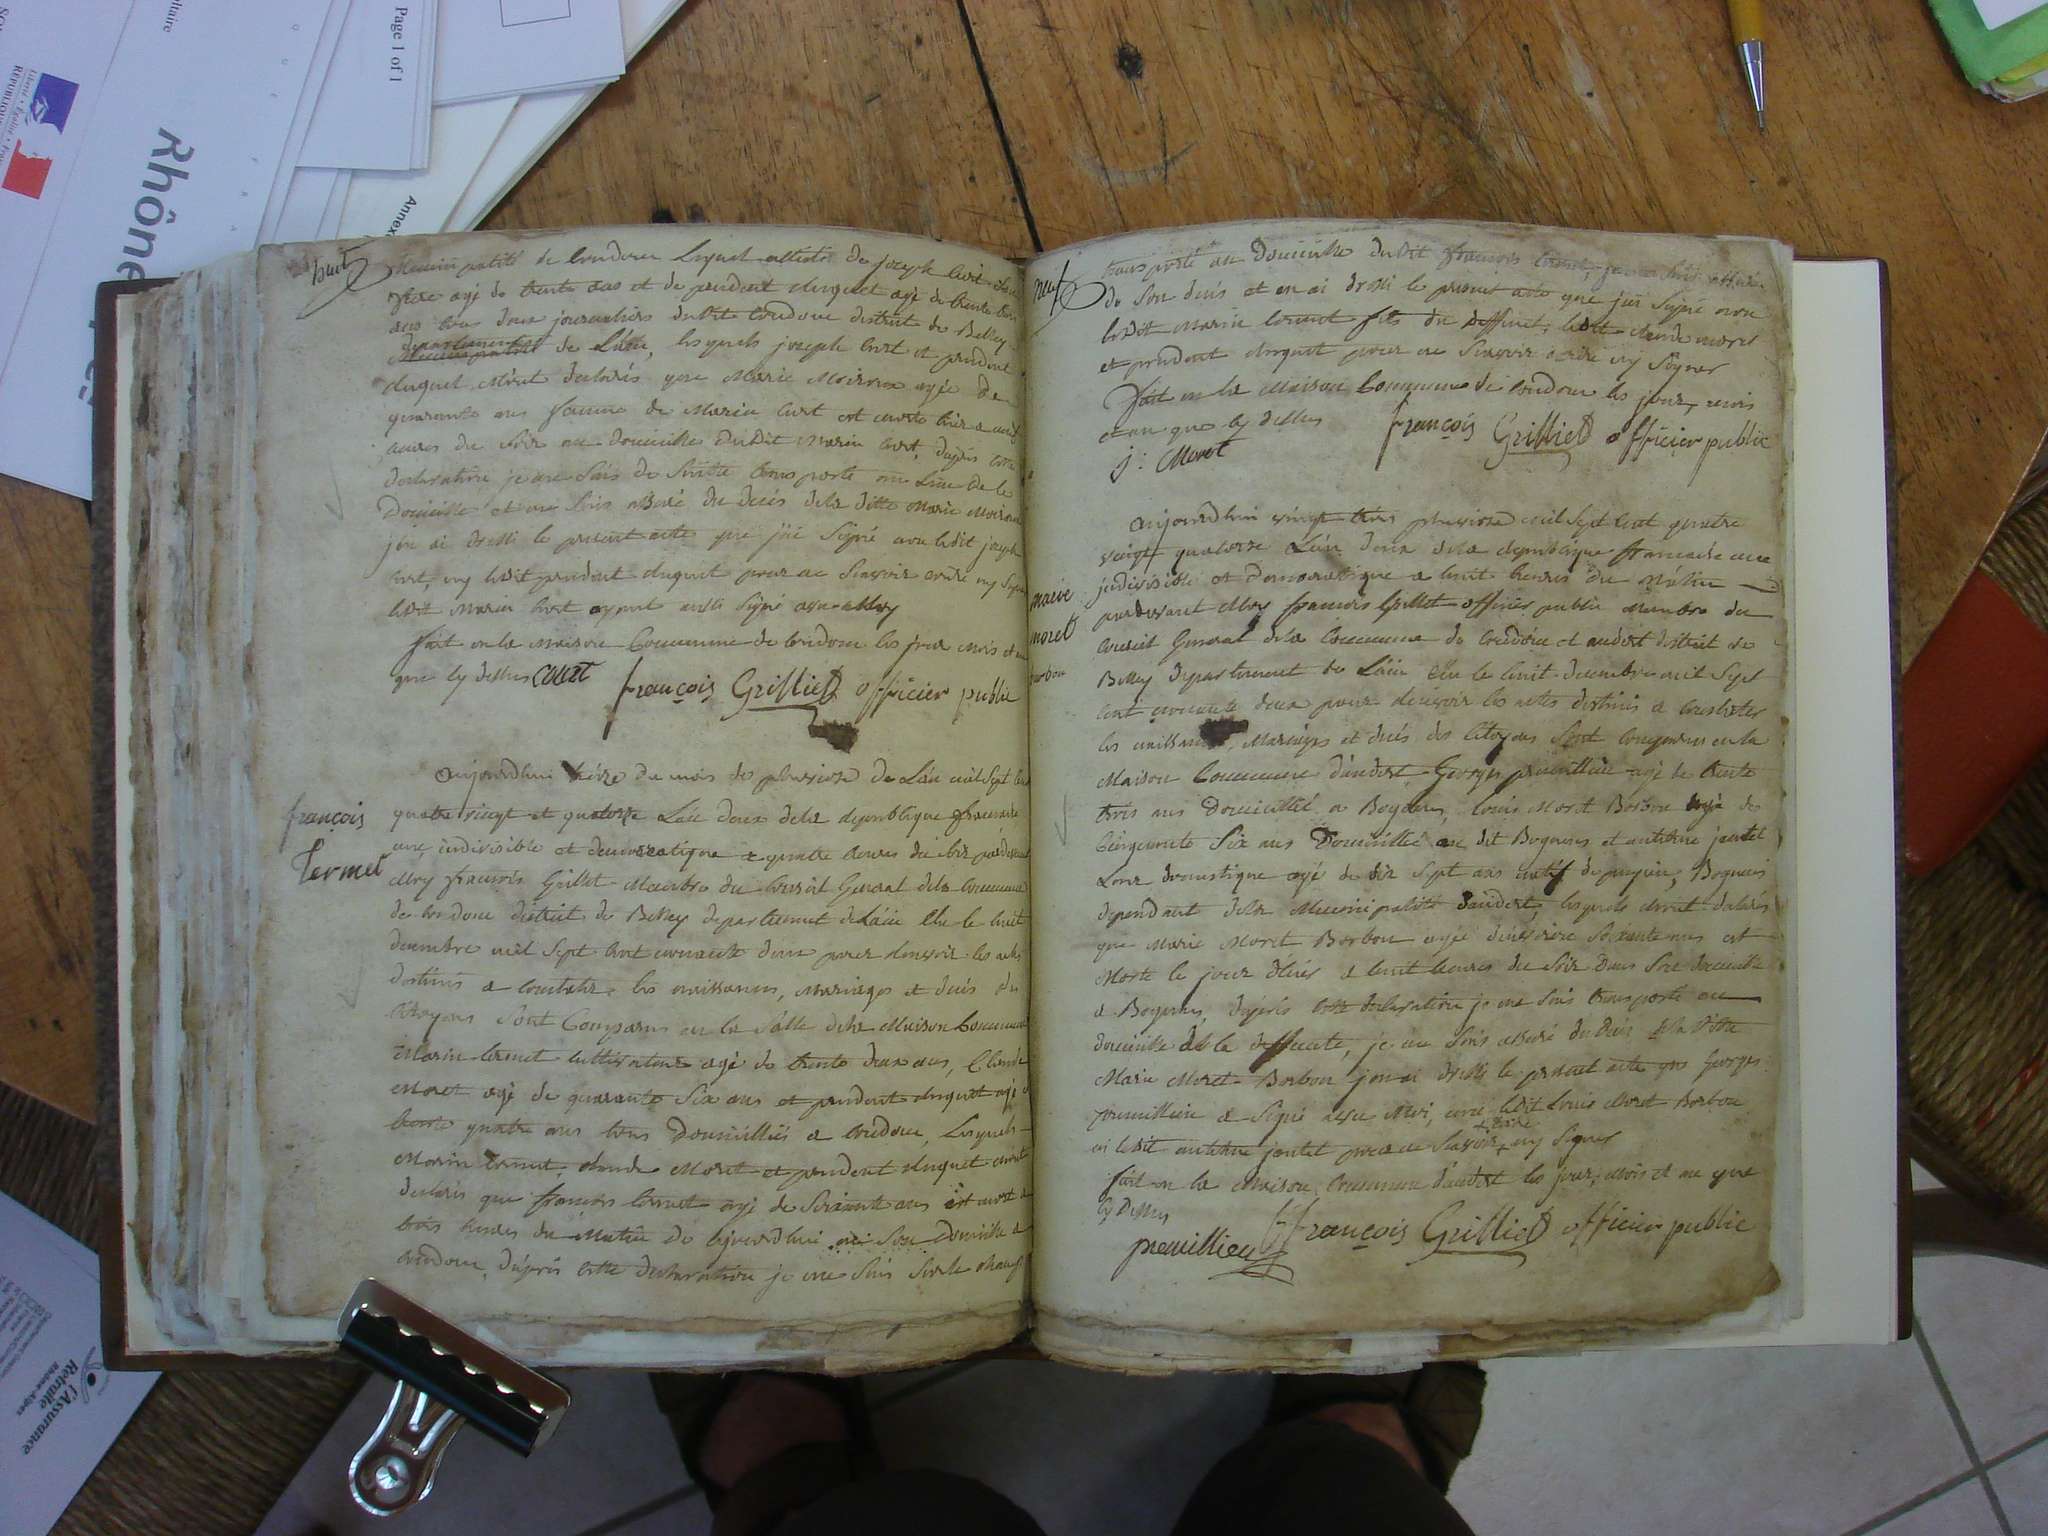 huit
Municipalité de Condouu Lequel attesté de joseph Curt
frere agé de trente ans et de prudent duquet agé de trente
ans tous deux journaliers dudit Condouu district de Belley
departement
de L'áin, lesquels joseph Curt et prudent
duquet m'ont declarés que Marie Moiroux agée de
quarante ans femme de Marin Curt est morte hier a
heures du soir au domicille dudit Marin Curt, d'aprés cette
declaration je me suis de suitte transporté au Lieu de le
Domicille et me suis assuré du decés de la ditte Marie
j'en ai dressé le present acte que j'ai signé avec ledit joseph
Curt, ny ledit prudent duquet pour ne scavoir ecrire ny signer
ledit Marin Curt ayant aussi signé avec
fait en la maison Commune de Condouu les jour mois et an
que cy dessus CURT françois Grilliet officier public
françois
Termet
aujourdhui treize du mois de pluviose de L'an mil sept cent
quatre vingt et quatorze L'an deux de la republique francaise
une, indivisible et democratique a quatre heures du soir pardevant
Moy francois Grillet Membre du Conseil General de la Commune
de Condouu district de Belley departement de L'áin Elu le huit
decembre mil sept cent nonante deux pour recevoir les actes
destinés a constater les naissances, mariages et decés des
Citoyens sont Comparus en la Salle de la Maison Commune
Marin termet cultivateur agé de trente deux ans, Claude
Moret agé de quarante six ans et prudent duquet agé de
trente quatre ans tous Domicilliés a Condouu, Lesquels
Marin termet, claude Moret et prudent duquet m'ont
declarés que françois termet agé de soixante ans est mort a
trois heures du matin de ajourdhui en son domicille a
Condouu, d'aprés cette declaration je me suis
neuf
transporté au Domicille dudit francois termet, je me suis assuré
de son decés et en ai dressé le present acte que j'ai signé avec
ledit Marin termet fils du deffunt, ledit claude moret
et prudent duquet pour ne scavoir ecrire ny signer
fait en la Maison Commune de Condouu les jour, mois
et an que cy dessus françois Grilliet officier public
j: Moret
marie
moret
borbon
aujourdhui vingt trois pluviose mil sept cent quatre
vingt quatorze L'an deux de la republique francaise une
indivisible et democratique a huit heures du Matin
pardevant Moy francois Grillet officier public Membre du
Conseil General de la Commune de Condouu et andert district de
Belley departement de L'áin Elu le huit decembre mil sept
cent nonante deux pour recevoir les actes destinés a constater
les naissances, Mariages et decés des Citoyens sont comparus en la
Maison Commune d'andert Georges premillieu agé de trente
trois ans Domicillié a Bognens, louis Moret Borbon agé de
Cinquante six ans Domicillié au dit Bognens et anthelme jantet
domestique agé de dix sept ans natif de Bognens
dependant de la Municipalité d'andert, lesquels m'ont declarés
que Marie Moret Borbon agée d'environ soixante ans est
Morte le jour d'hier a huit heures du soir dans son domicille
a Bognens, d'aprés cette declaration je me suis transporté au
domicille de la deffunte, je me suis assuré du decés de la ditte
Marie Moret Borbon j'en ai dressé le present acte que Georges
premillieu a signé avec Moi, non ledit Louis Moret Borbon
ni ledit anthelme jantet pour ne scavoir ecrire ny signer
fait en la Maison Commune d'andert les jour, mois et an que
cy Dessus
premillieu françois Grilliet officier public
Rhône
Page 1 of 1
Annex
Liberté • Égalité
l'Assurance
Retraite
Rhône-Alpes